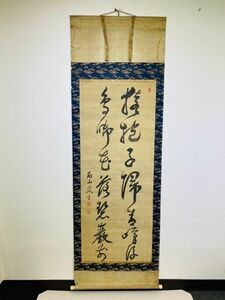 猿抱子歸青嶂後
鳥啣花落碧巖前